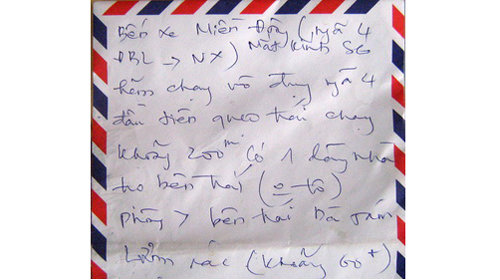 Bến xe Miền Đông (ngã 4
ĐBL → NX) Mắt kính SG
hẽm chạy vô đụng ngã 4
đầu tiên quẹo trái chạy
khoãng 200m có 1 dãy nhà
trọ bên trái (ô-tô)
phòng 7 bên trái Bà
(khoãng 60+)